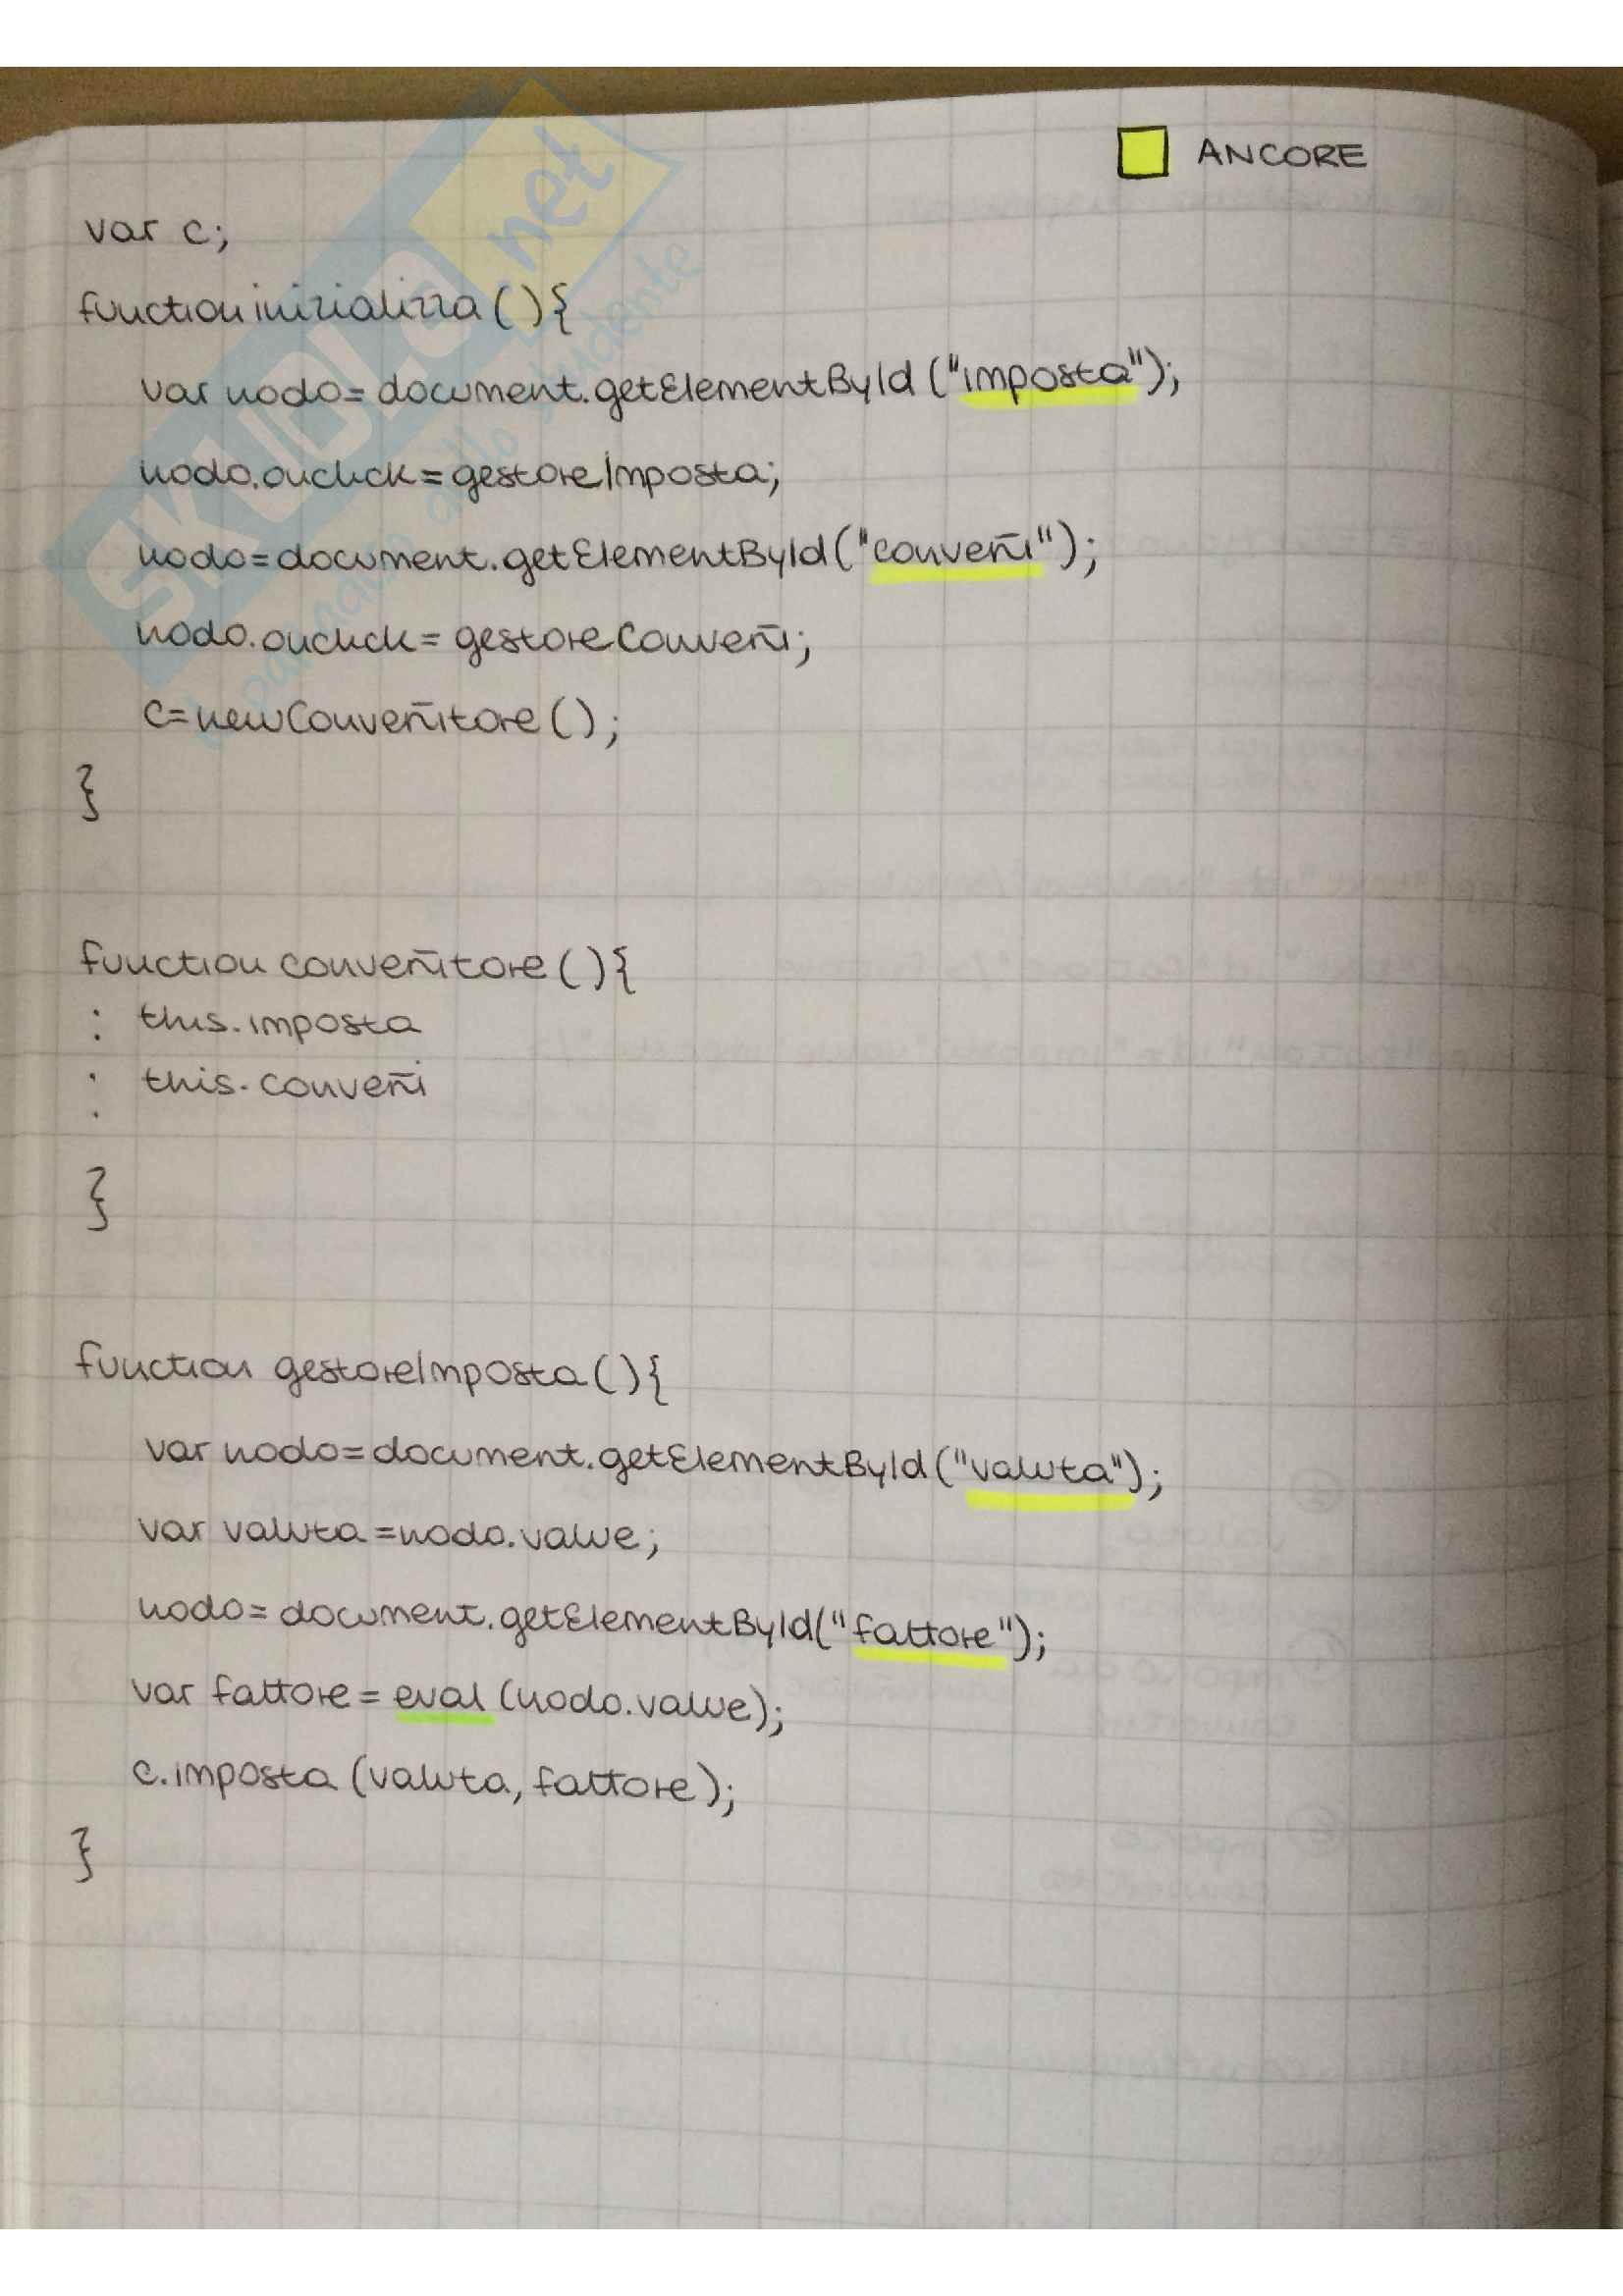 ANCORE
var c;
function inizializza(){
var nodo=document.getElementById("imposta");
nodo.onclick=gestoreImposta;
nodo=document.getElementById("converti");
nodo.onclick=gestoreConverti;
c=newConvertitore();
}
function convertitore(){
: this.imposta
: this.converti
}
function gestoreImposta(){
var nodo=document.getElementById("valuta");
var valuta=nodo.value;
nodo=document.getElementById("fattore");
var fattore=eval(nodo.value);
c.imposta(valuta,fattore);
}
SKUOLA.net